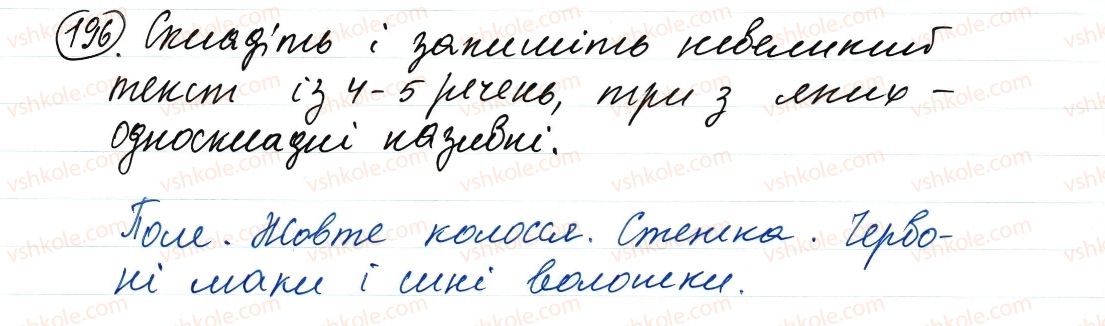 196. Складіть і запишіть невеликий
текст із 4-5 речень, три з яких –
односкладні називні.
Поле. Жовте колосся. Стежка. Черво-
ні маки і сині волошки.